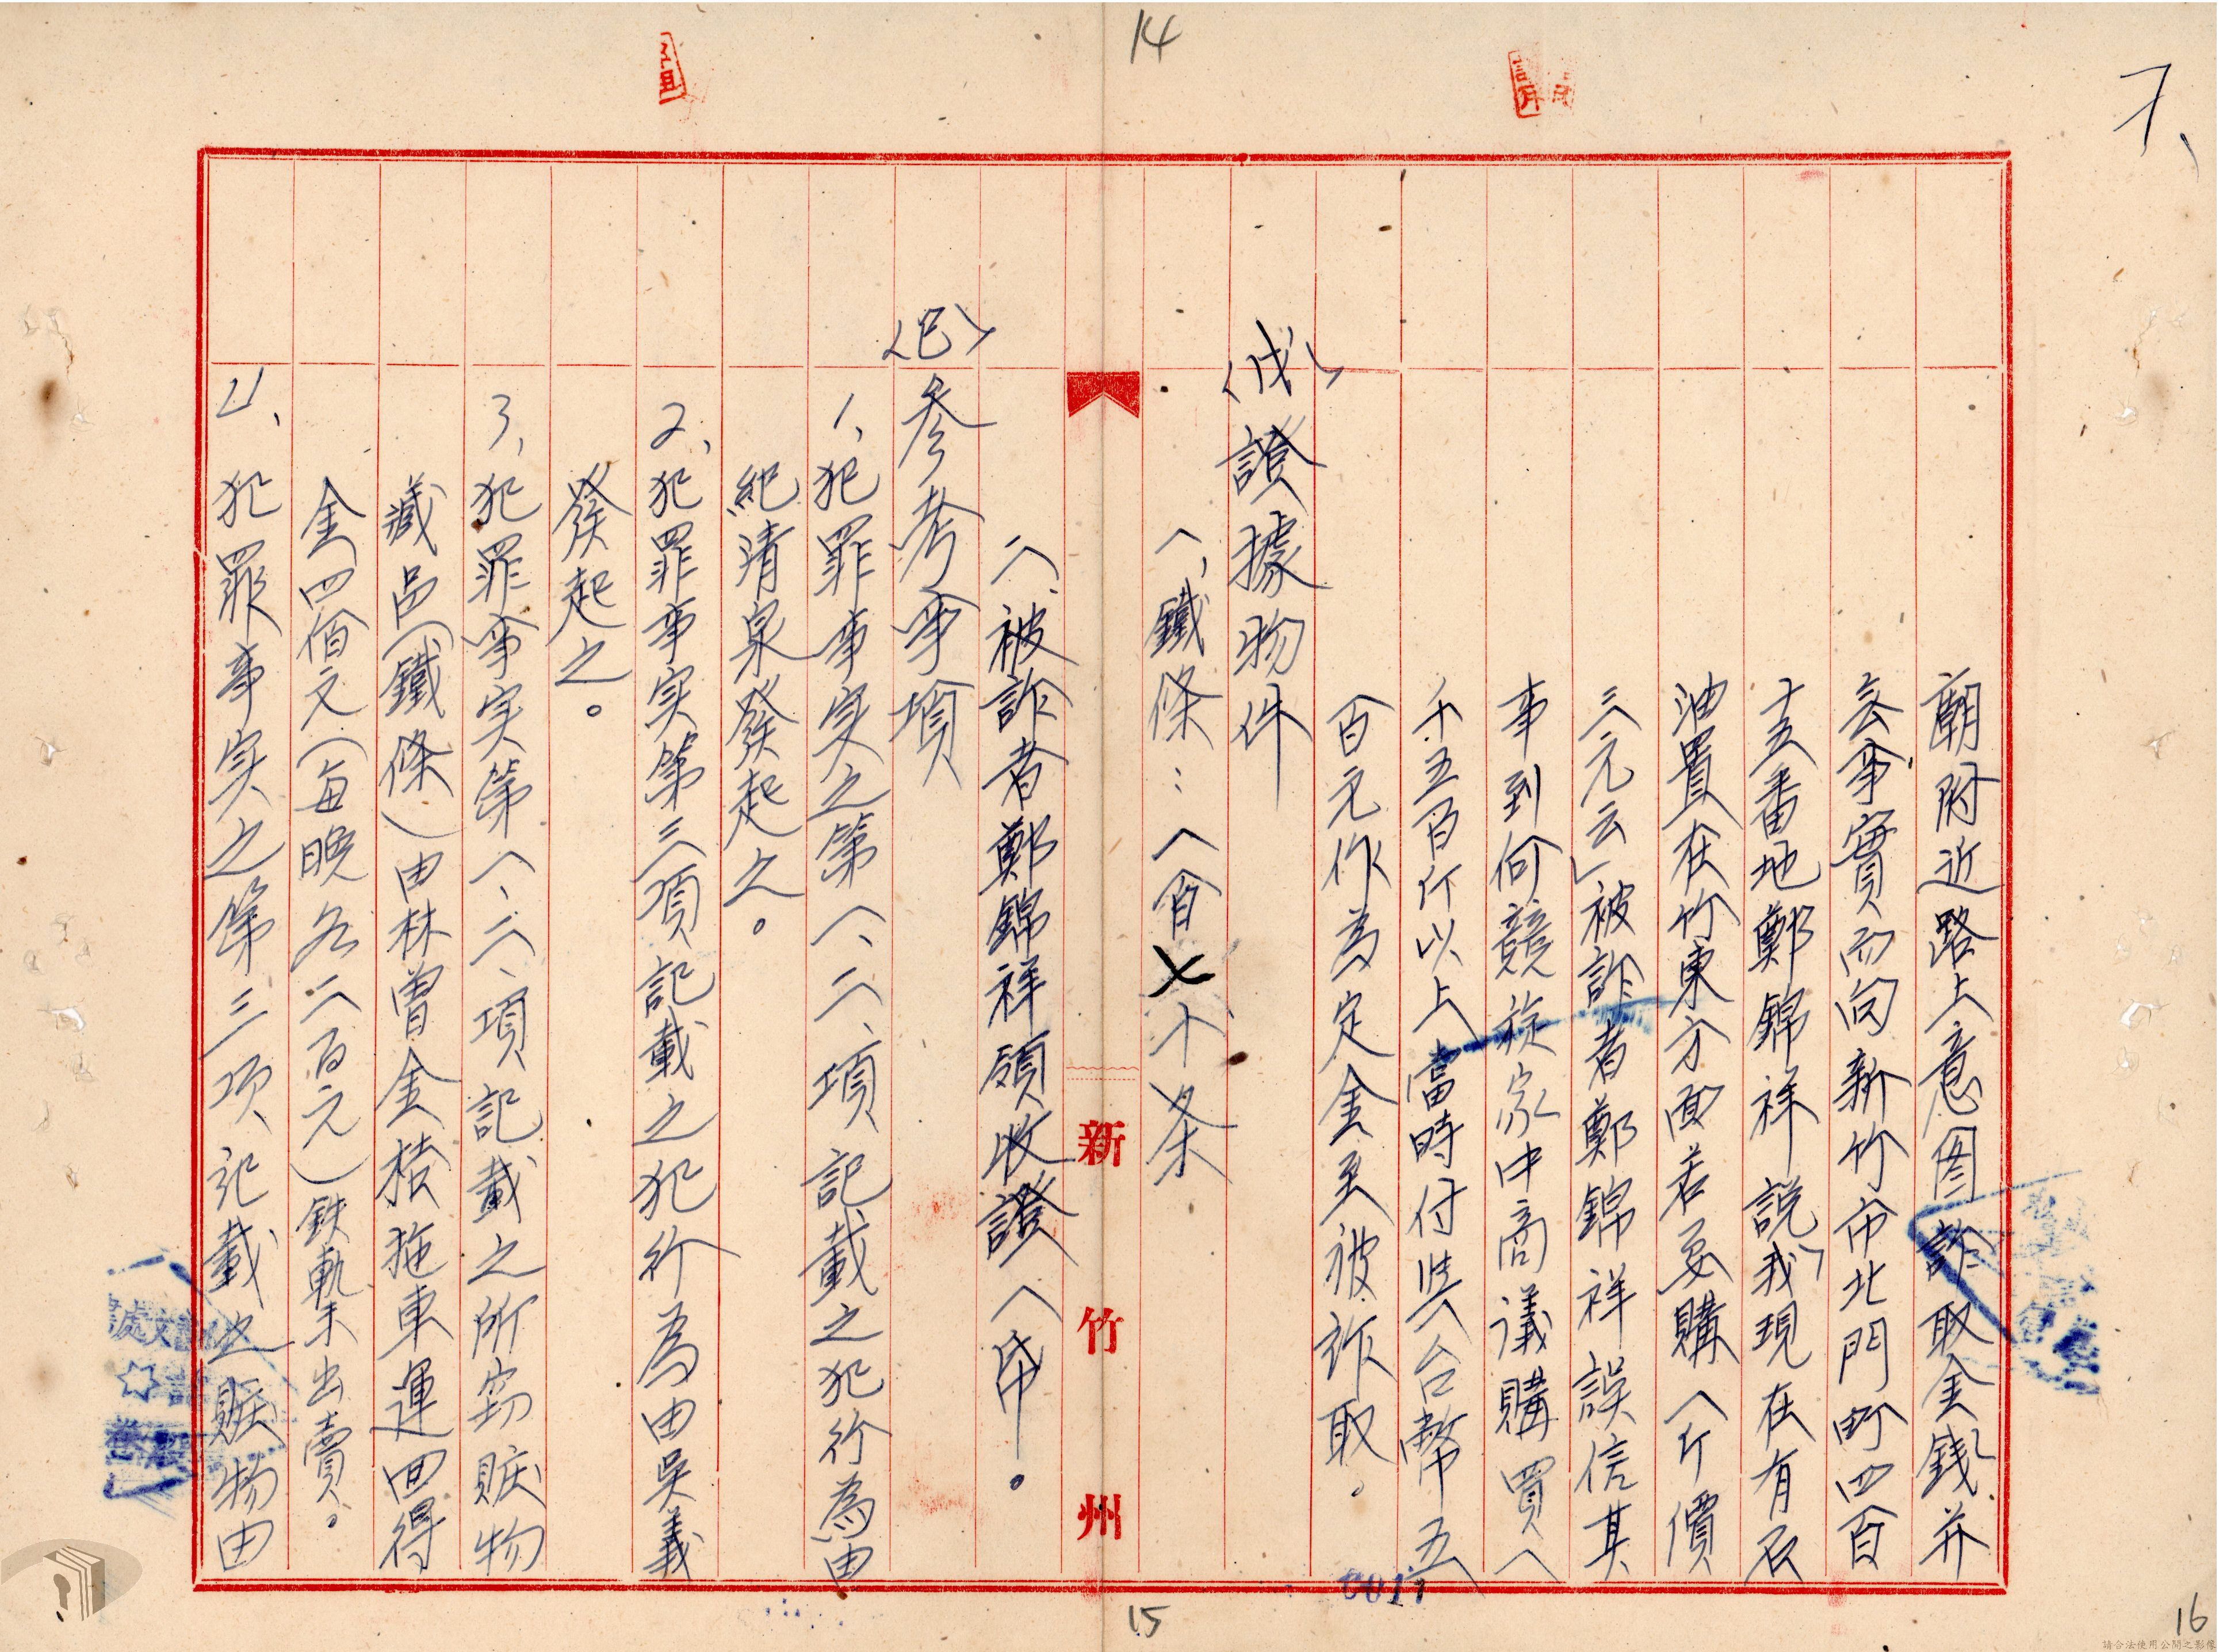 14
廟附近路上意图詐取金錢并
云事實而向新竹市北門町四百
十五番地鄭錦祥説「我現在有石
油置在竹東方面若要購一斤價
三元云」被詐者鄭錦祥誤信其
事到何競旋家中商議購買一
千五百斤以上當時付与台幣五
百元作為定金至被詐取。
<戊>證據物件
一、鐵條：一百七十条
新竹州
二、被詐者鄭錦祥領收證一帋。
<己>参考事項
1、犯罪事实之第一、二、項記載之犯行為由
紀清泉發起之。
2、犯罪事实第三項記載之犯行為由吳義
發起之。
3、犯罪事实第一、二、項記載之所窃賍物
臧品（鐵條）由林曽金 拖車運回得
金四佰元（每晩各二百元）鉄 出賣。
4、犯罪事实之第三項記載之賍物由
15
16
請合法使用公開之影像